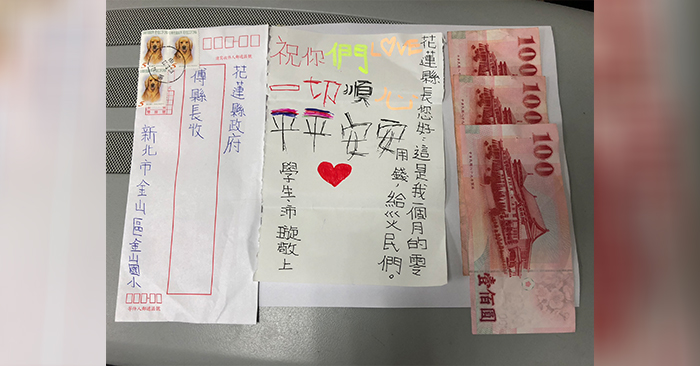 花蓮縣政府
傅縣長收
新北市金山區金山國小
寄件人郵遞區號
花蓮縣長您好:這是我一個月的雲
用錢,給災民們。
LOVE
祝你們
一切順心
平平安安
學生:沛璇敬上
100
100
100
壹佰圓